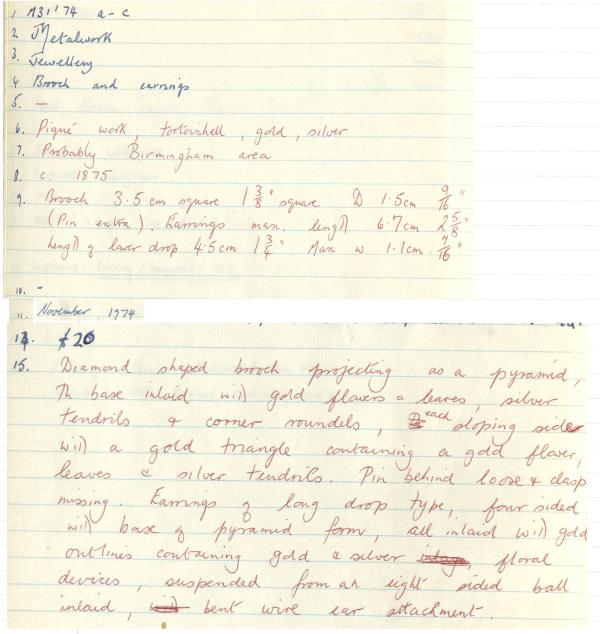 1 M31'74 a-c
2 Metalwork
3. Jewellery
4 Brooch and earrings
5. —
6. Piqué work, tortoiseshell, gold, silver
7. Probably Birmingham area
8. c. 1875
9. Brooch 3.5cm square 1 3/8" square D 1.5cm 9/16"
(Pin extra). Earrings max. length 6.7cm 2 5/8"
length of lower drop 4.5cm 1 3/4" Max w 1.1cm. 7/16"
10. -
11. November, 1974
14. £20
15. Diamond shaped brooch projecting as a pyramid,
Th base inlaid with gold flowers & leaves, silver
tendrils & corner roundels, each sloping side
with a gold triangle containing a gold flower,
leaves & silver tendrils. Pin behind loose & clasp
missing. Earrings of long drop type, four sided
with base of pyramid form, all inlaid with gold
outlines containing gold & silver floral
devices, suspended from an eight sided ball
inlaid, bent wire ear attachment.